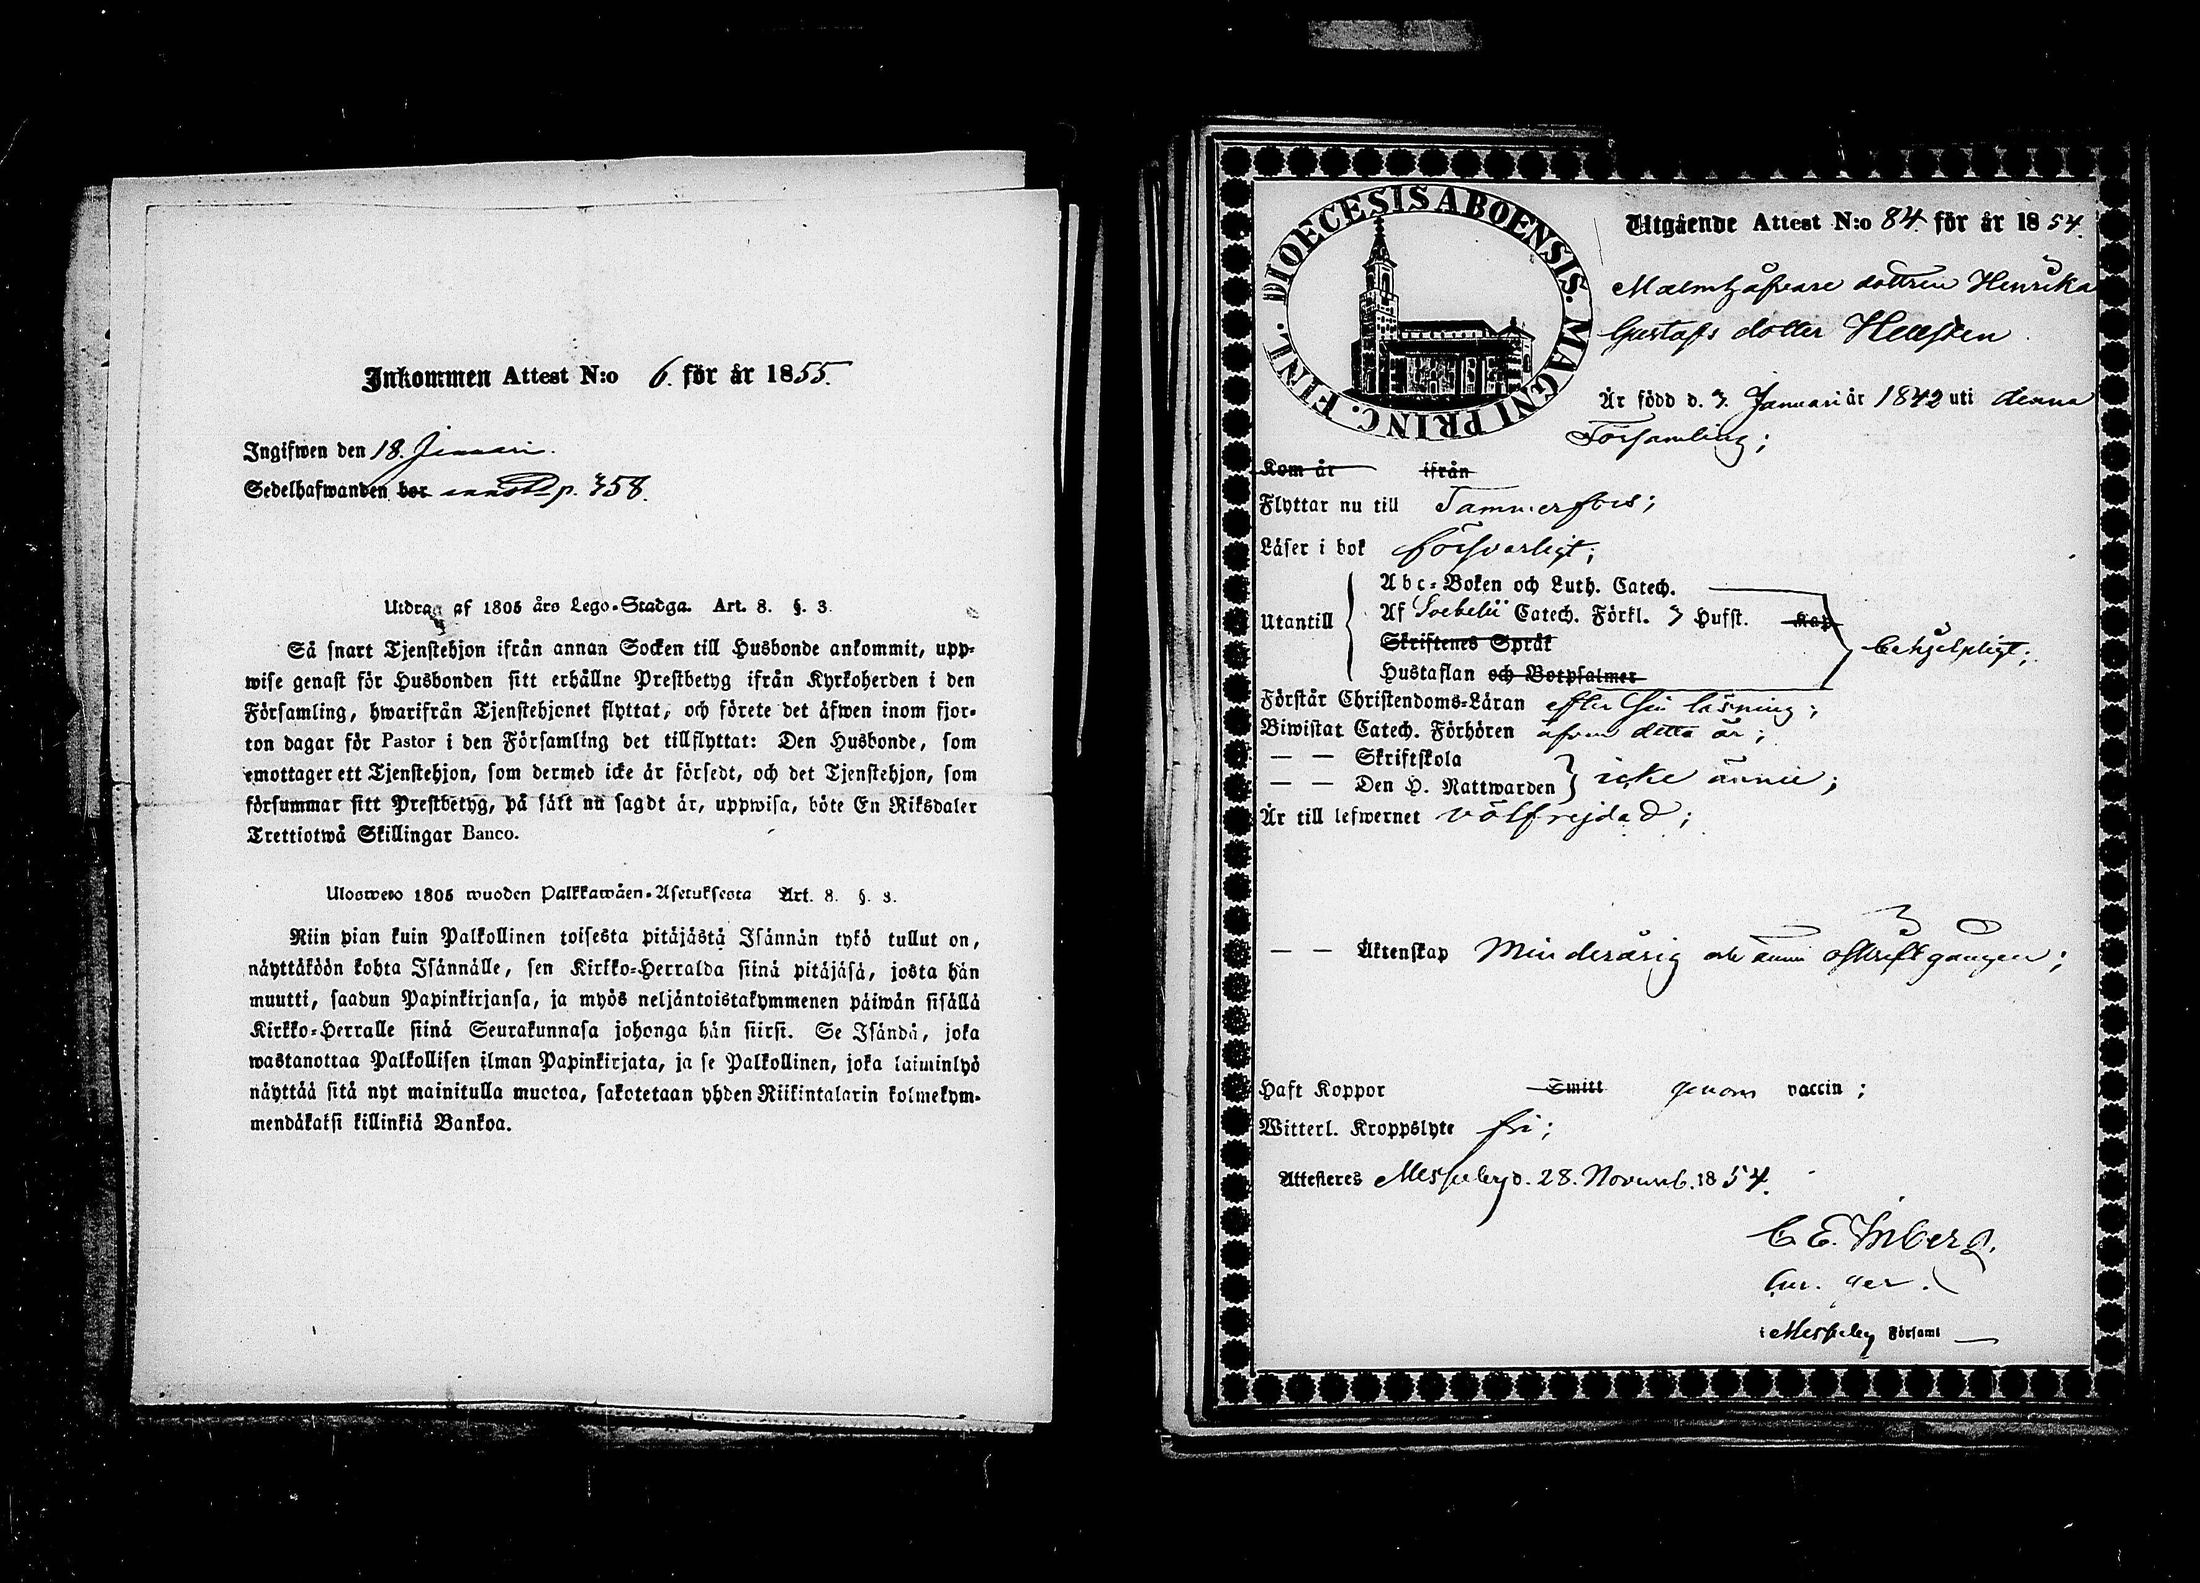 Inkommen Attest N:o 6. för år 1855.
Ingifwen den 18. Januari.
Sedelhafwanden bor p. 358.
Utdrag af 1805 års Lego-Stadga. Art. 8. §. 3.
Så snart Tjenstehjon ifrån annan Socken till Husbonde ankommit, upp-
wise genast för Husbonden sitt erhållne Prestbetyg ifrån Kyrkoherden i den
Församling, hwarifrån Tjenstehjonet flyttat, och förete det äfwen inom fjor-
ton dagar för Pastor i den Församling det tillflyttat: Den Husbonde, som
emottager ett Tjenstehjon, som dermed icke är försedt, och det Tjenstehjon, som
försummar sitt Prestbetyg, på sätt nu sagdt är, uppwisa, böte En Riksdaler
Trettiotwå Skillingar Banco.
Ulosweto 1805 wuoden Palkkawäen-Asetuksesta Art. 8. §. 3.
Niin pian kuin Palkollinen toisesta pitäjästä Isännän tykö tullut on,
näyttäköön kohta Isännälle, sen Kirkko-Herralda siinä pitäjäsä, josta hän
muutti, saadun Papinkirjansa, ja myös neljäntoistakymmenen päiwän sisällä
Kirkko-Herralle siinä Seurakunnasa johonga hän siirsi. Se Isändä, joka
wastanottaa Palkollisen ilman Papinkirjata, ja se Palkollinen, joka laiminlyö
näyttää sitä nyt mainitulla muotoa, sakotetaan yhden Riikintalarin kolmekym-
mendäkaksi killinkiä Bankoa.
DIOECESIS ABOENSIS. MAGNI PRINC. FINL.
Utgående Attest N:o 84. för år 1854.
dottren Henrika
Gustafs dotter
Är född d. 3. Januari år 1842 uti denna
Församling;
Kom år ifrån
Flyttar nu till Tammerfors;
Läser i bok försvarligt;
Utantill
Abc-Boken och Luth. Catech.
Af Svebelii Catech. Förkl. 3 Hufst. Kap
Skriftenes Språk
Hustaflan och Botpsalmer
behjelpligt;
Förstår Christendoms-Läran efter sin läsning;
Biwistat Catech. Förhören äfven detta år;
— — Skriftskola
— — Den H. Nattwarden icke ännu;
Är till lefwernet välfrejdad;
— — Äktenskap Minderårig och ännu oskriftgången;
Haft Koppor Smitt genom vaccin;
Witterl. Kroppslyte fri;
Attesteres Messuby d. 28. Novemb. 1854.
C E. Inberg.
i Messuby Församl